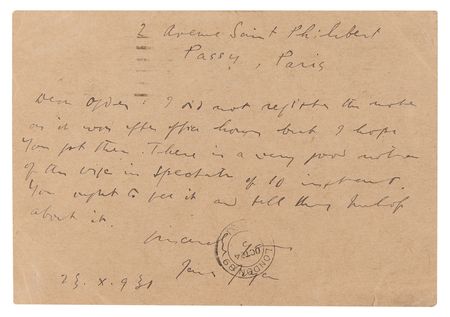 2 Avenue Saint Philibert
Passy, Paris
Dear Ogden: I did not register the notes
as it was after office hours but I hope
you got them. There is a very good notice
of the in Spectator of 10 instant.
You ought to get it and tell
about it.
Sincerely
James Joyce
LONDON
OCT 24
23.X.931